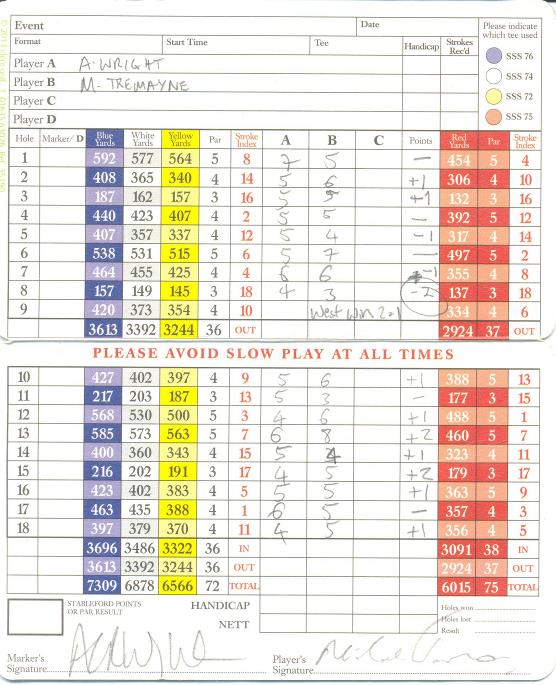 Event Date
Format Start Time Tee Handicap Strokes Rec'd
Please indicate which tee used
Player A A. WRIGHT
Player B M. TREMAYNE
Player C
Player D
SSS 76
SSS 74
SSS 72
SSS 75
Hole Marker/ D Blue Yards White Yards Yellow Yards Par Stroke Index A B C Points Red Yards Par Stroke Index
1 592 577 564 5 8 7 5 — 454 5 4
2 408 365 340 4 14 5 6 +1 306 4 10
3 187 162 157 3 16 5 5 +1 132 3 16
4 440 423 407 4 2 5 5 — 392 5 12
5 407 357 337 4 12 5 4 -1 317 4 14
6 538 531 515 5 6 5 7 — 497 5 2
7 464 455 425 4 4 6 6 -1 355 4 8
8 157 149 145 3 18 4 3 -2 137 3 18
9 420 373 354 4 10 West Win 2-1 334 4 6
3613 3392 3244 36 OUT 2924 37 OUT
PLEASE AVOID SLOW PLAY AT ALL TIMES
10 427 402 397 4 9 5 6 +1 388 5 13
11 217 203 187 3 13 5 3 - 177 3 15
12 568 530 500 5 3 4 6 +1 488 5 1
13 585 573 563 5 7 6 8 +2 460 5 7
14 400 360 343 4 15 5 4 +1 323 4 11
15 216 202 191 3 17 4 5 +2 179 3 17
16 423 402 383 4 5 5 5 +1 363 5 9
17 463 435 388 4 1 6 5 — 357 4 3
18 397 379 370 4 11 4 5 +1 356 4 5
3696 3486 3322 36 IN 3091 38 IN
3613 3392 3244 36 OUT 2924 37 OUT
7309 6878 6566 72 TOTAL 6015 75 TOTAL
STABLEFORD POINTS OR PAR RESULT
HANDICAP
NETT
Holes won
Holes lost
Result
Marker's Signature
Player's Signature